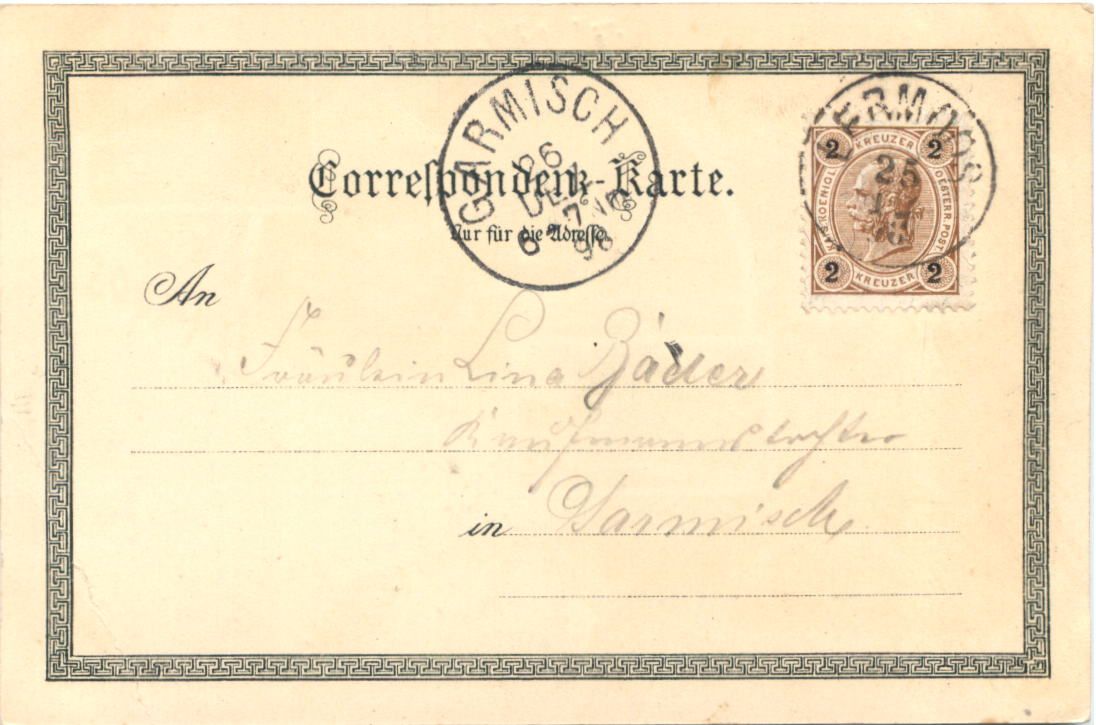 GARMISCH
26
DEZ
LERMOOS
25
12
2 KREUZER 2
KAIS. KOENIGL. OESTERR. POST
2 KREUZER 2
Correspondenz-Karte.
Nur für die Adresse.
An
Fräulein Lina Bader
Kaufmannstochter
in Garmisch